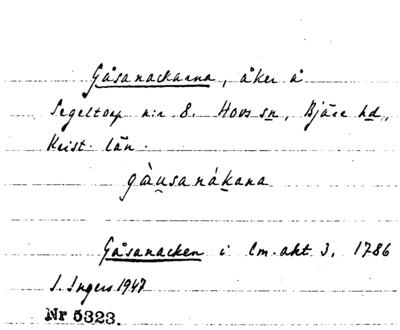 Gåsanackarna, åker å
Segeltorp n:r 8. Hovs sn, Bjäre hd,
Krist. län.
gàusanákana
Gåsanacken i lm.akt 3, 1786
I. Ingers 1947
Nr 5323.